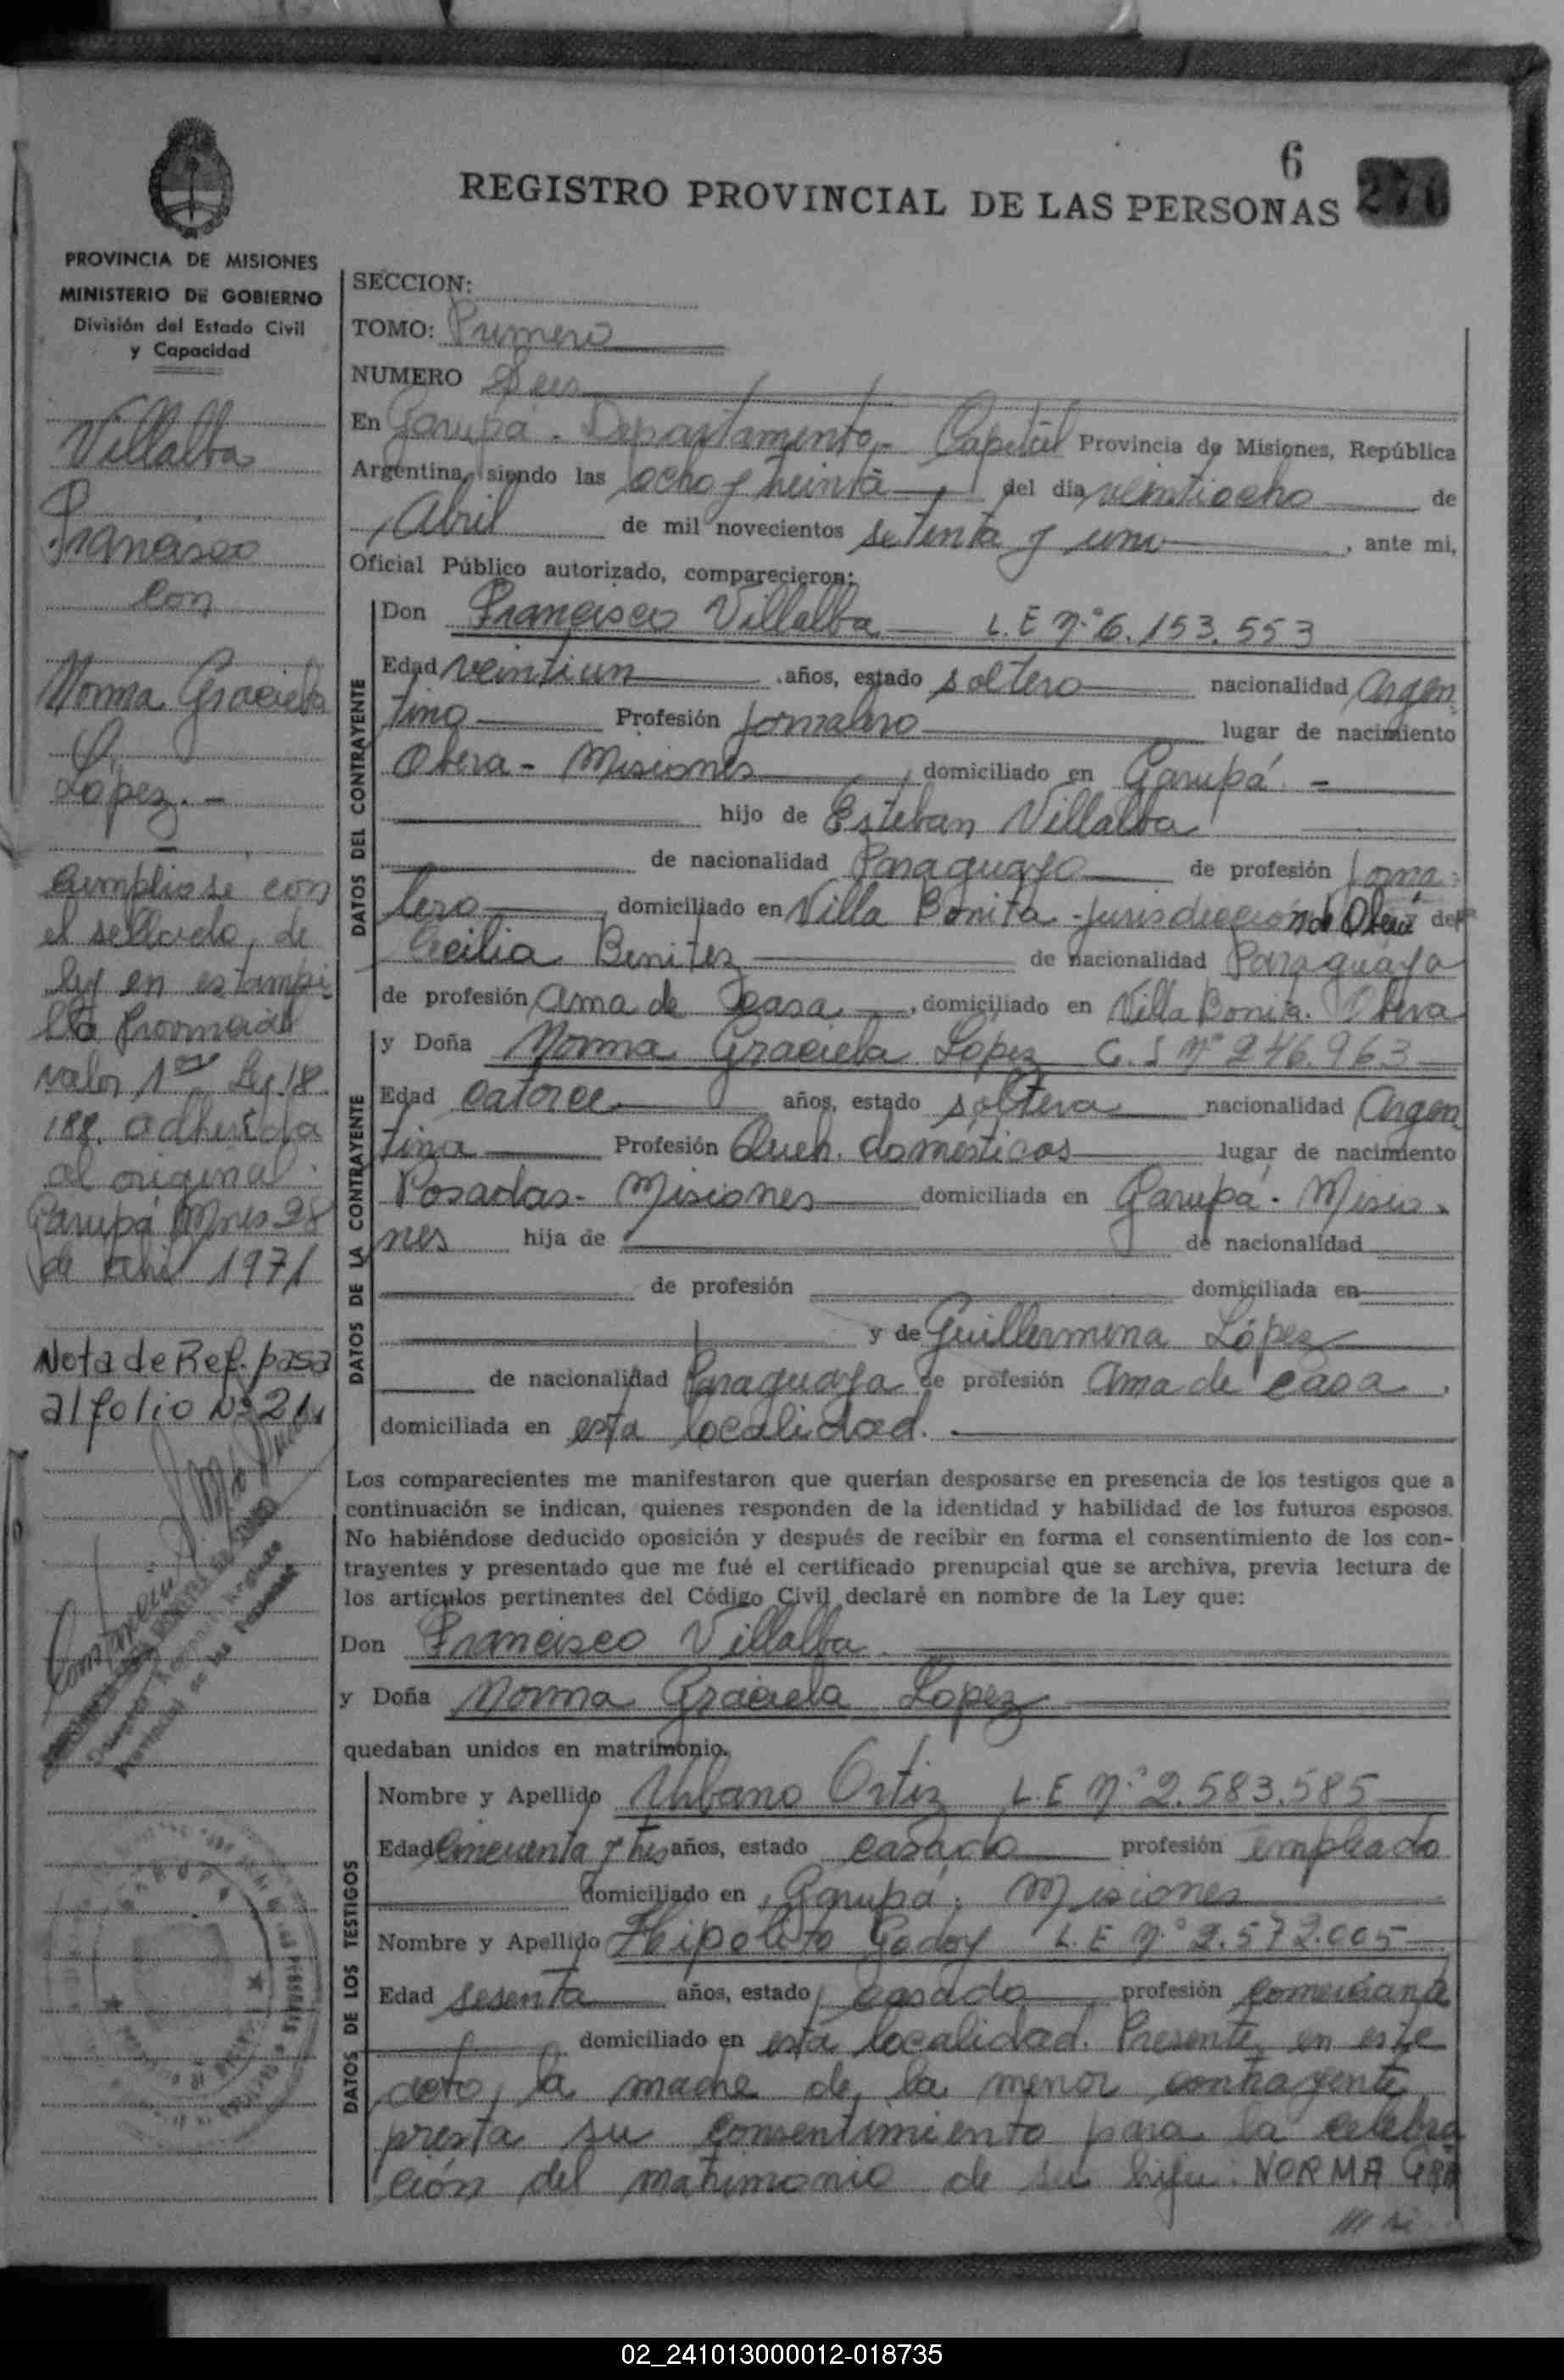 6
REGISTRO PROVINCIAL DE LAS PERSONAS 276
PROVINCIA DE MISIONES
MINISTERIO DE GOBIERNO
División del Estado Civil
y Capacidad
Villalba
Francisco
con
Norma Graciela
López.-
Cumpliose con
el sellado de
ley en estampi
lla Provincial
valor 1 Ley 18.
188. adherida
al original.
Garupá Mnes 28
de abril 1971
Nota de Ref. pasa
al folio Nº 21
SECCION:
TOMO: Primero
NUMERO Seis
En Garupá. Departamento. Capital Provincia de Misiones, República
Argentina, siendo las ocho y treinta del día veintiocho de
Abril de mil novecientos setenta y uno, ante mi,
Oficial Público autorizado, comparecieron:
DATOS DEL CONTRAYENTE
Don Francisco Villalba L.E Nº 6.153.553
Edad veintiun años, estado soltero nacionalidad Argen
tino Profesión Jornalero lugar de nacimiento
Obera - Misiones, domiciliado en Garupá. -
hijo de Esteban Villalba
de nacionalidad Paraguayo de profesión Jorna
lero, domiciliado en Villa Bonita - Jurisdicción de Oberá de
Cecilia Benitez de nacionalidad Paraguaya
de profesión Ama de Casa, domiciliado en Villa Bonita. Obera
DATOS DE LA CONTRAYENTE
y Doña Norma Graciela López C. I Nº 246.963
Edad catorce años, estado soltera nacionalidad Argen
tina Profesión Queh. domésticos lugar de nacimiento
Posadas - Misiones domiciliada en Garupá. Misio
nes hija de de nacionalidad
de profesión domiciliada en
y de Guillermina López
de nacionalidad Paraguaya de profesión Ama de casa,
domiciliada en esta localidad.
Los comparecientes me manifestaron que querían desposarse en presencia de los testigos que a
continuación se indican, quienes responden de la identidad y habilidad de los futuros esposos.
No habiéndose deducido oposición y después de recibir en forma el consentimiento de los con-
trayentes y presentado que me fué el certificado prenupcial que se archiva, previa lectura de
los artículos pertinentes del Código Civil declaré en nombre de la Ley que:
Don Francisco Villalba
y Doña Norma Graciela Lopez
quedaban unidos en matrimonio.
DATOS DE LOS TESTIGOS
Nombre y Apellido Urbano Ortiz L.E Nº 2.583.585
Edad Cincuenta y tres años, estado casado profesión empleado
domiciliado en Garupá. Misiones
Nombre y Apellido Hipolito Godoy L.E Nº 2.572.005
Edad sesenta años, estado casado profesión comerciante
domiciliado en esta localidad. Presente en este
acto, la madre de la menor contrayente,
presta su consentimiento para la celebra
ción del matrimonio de su hija: NORMA GRA
02_241013000012-018735